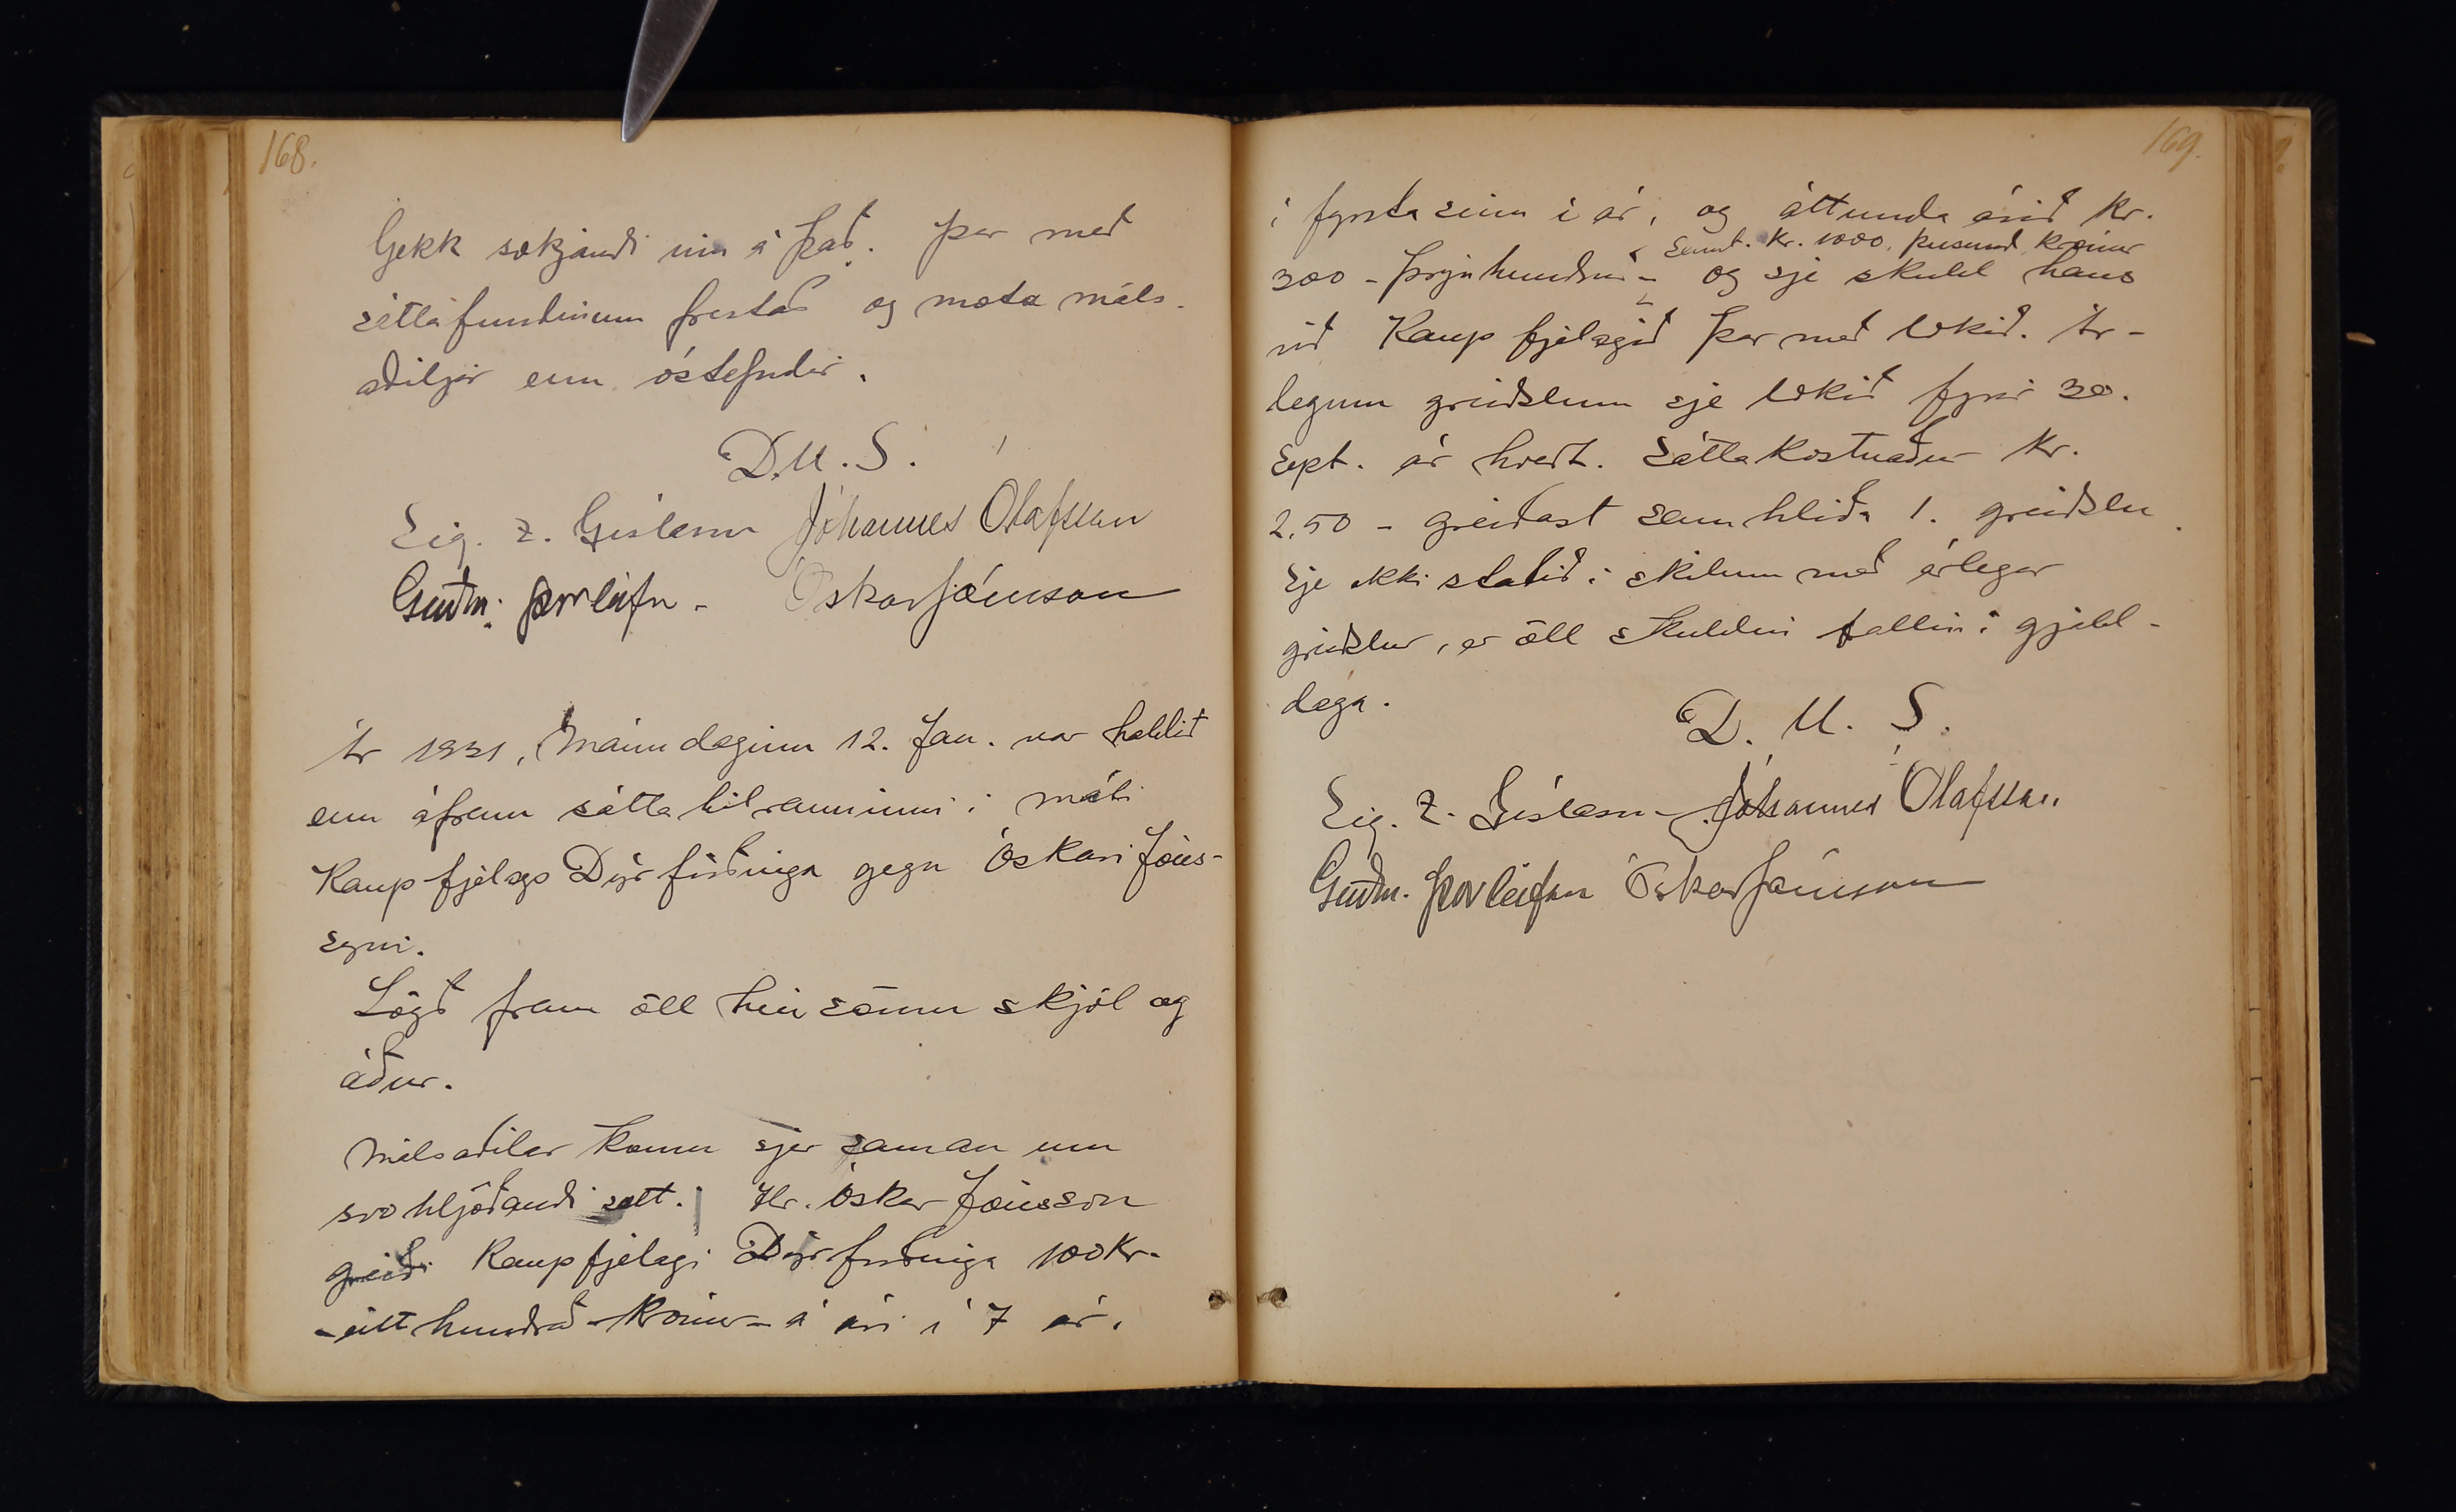 168.
Gekk sækjandi inn á það. Þar með
sáttafundinum frestað og mæta máls-
aðiljar enn óstefndir.
D.U.S.
Sig. Z. Gíslason Jóhannes Ólafsson
Guðm. Þorleifss. Óskar Jónsson
Ár 1931, Mánudaginn 12. Jan. var haldið
enn áfram sáttatilrauninni í máli
Kaupfjelags Dýrfirðinga gegn Óskari Jóns-
syni.
Lögð fram öll hin sömu skjöl og
áður.
Málsaðilar komu sjer saman um
svohljóðandi sátt. Hr. Óskar Jónsson
greiði Kaupfjelagi Dýrfirðinga 100 kr.
- eitt hundrað - krónur - á ári í 7 ár,
169.
í fyrsta sinn í ár, og áttunda árið kr.
Samt. Kr. 1000, þúsund krónur
300 - þrjú hundruð - og sje skuld hans
við Kaupfjelagið þar með lokið. Ár-
legum greiðslum sje lokið fyrir 30.
Sept. ár hvert. Sáttakostnaður kr.
2,50 - greiðast samhliða 1. greiðslu.
Sje ekki staðið í skilum með árlegar
greiðslur, er öll skuldin fallin í gjald-
daga.
D. U. S.
Sig. Z. Gíslason Jóhannes Ólafsson
Guðm. Þorleifsson Óskar Jónsson